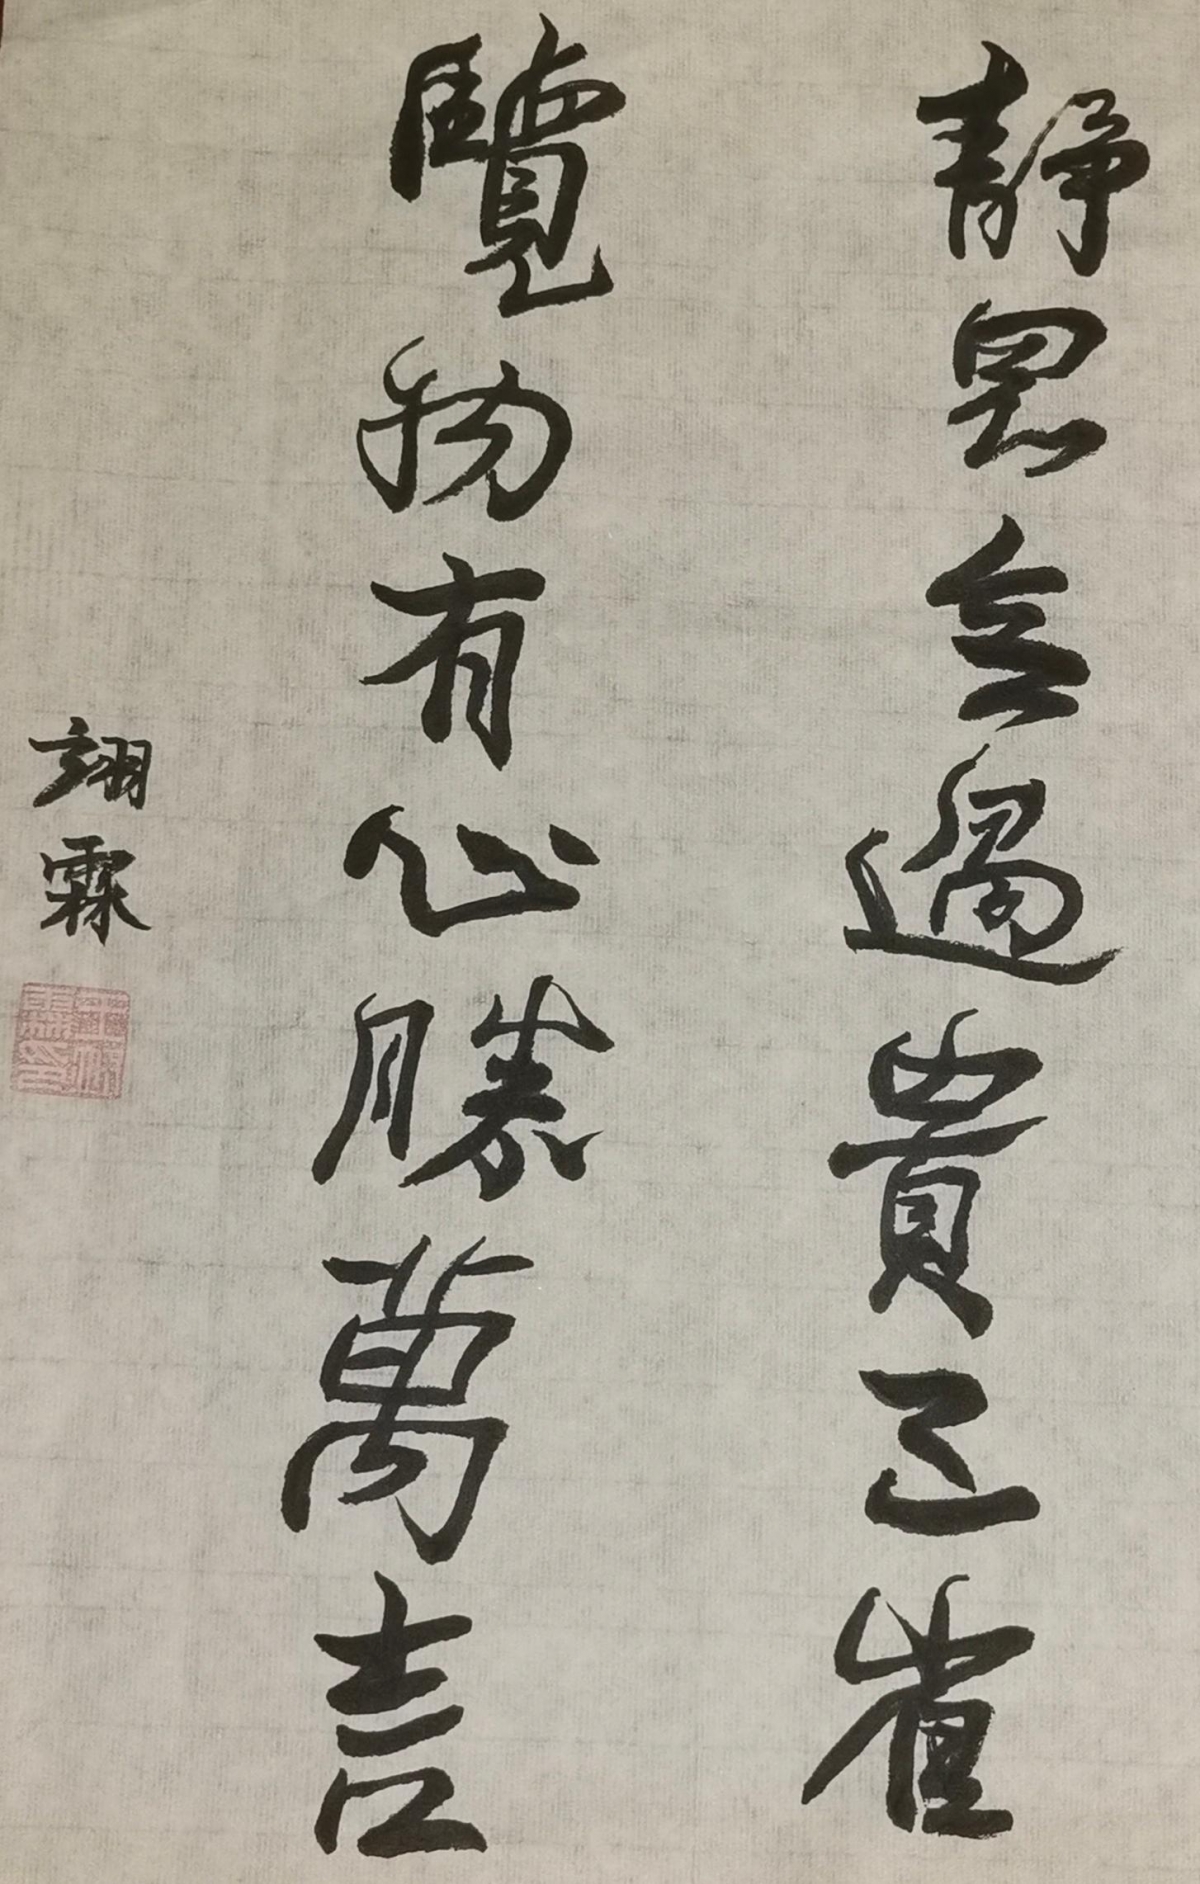 靜思無過貴三省
覽物有心勝萬言
翊霖